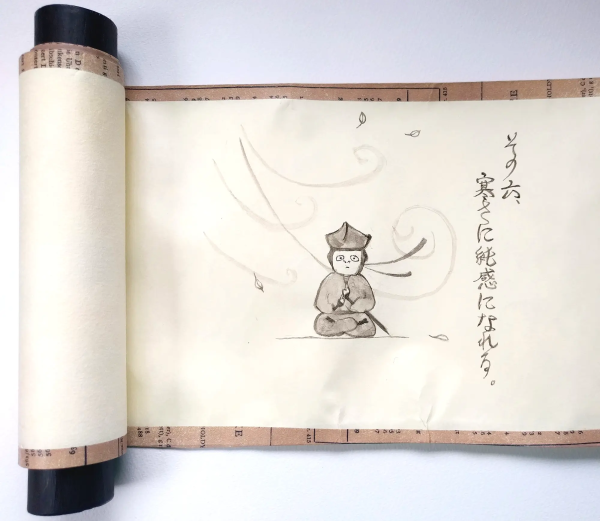 その六、
寒さに鈍感になれる。